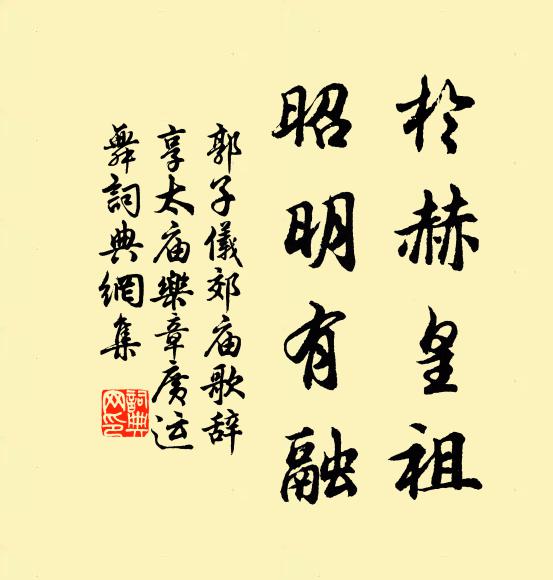 於赫皇祖
昭明有融
郭子儀郊庙歌辞
享太庙樂章廣运
舞詞典網集
詞典
网印